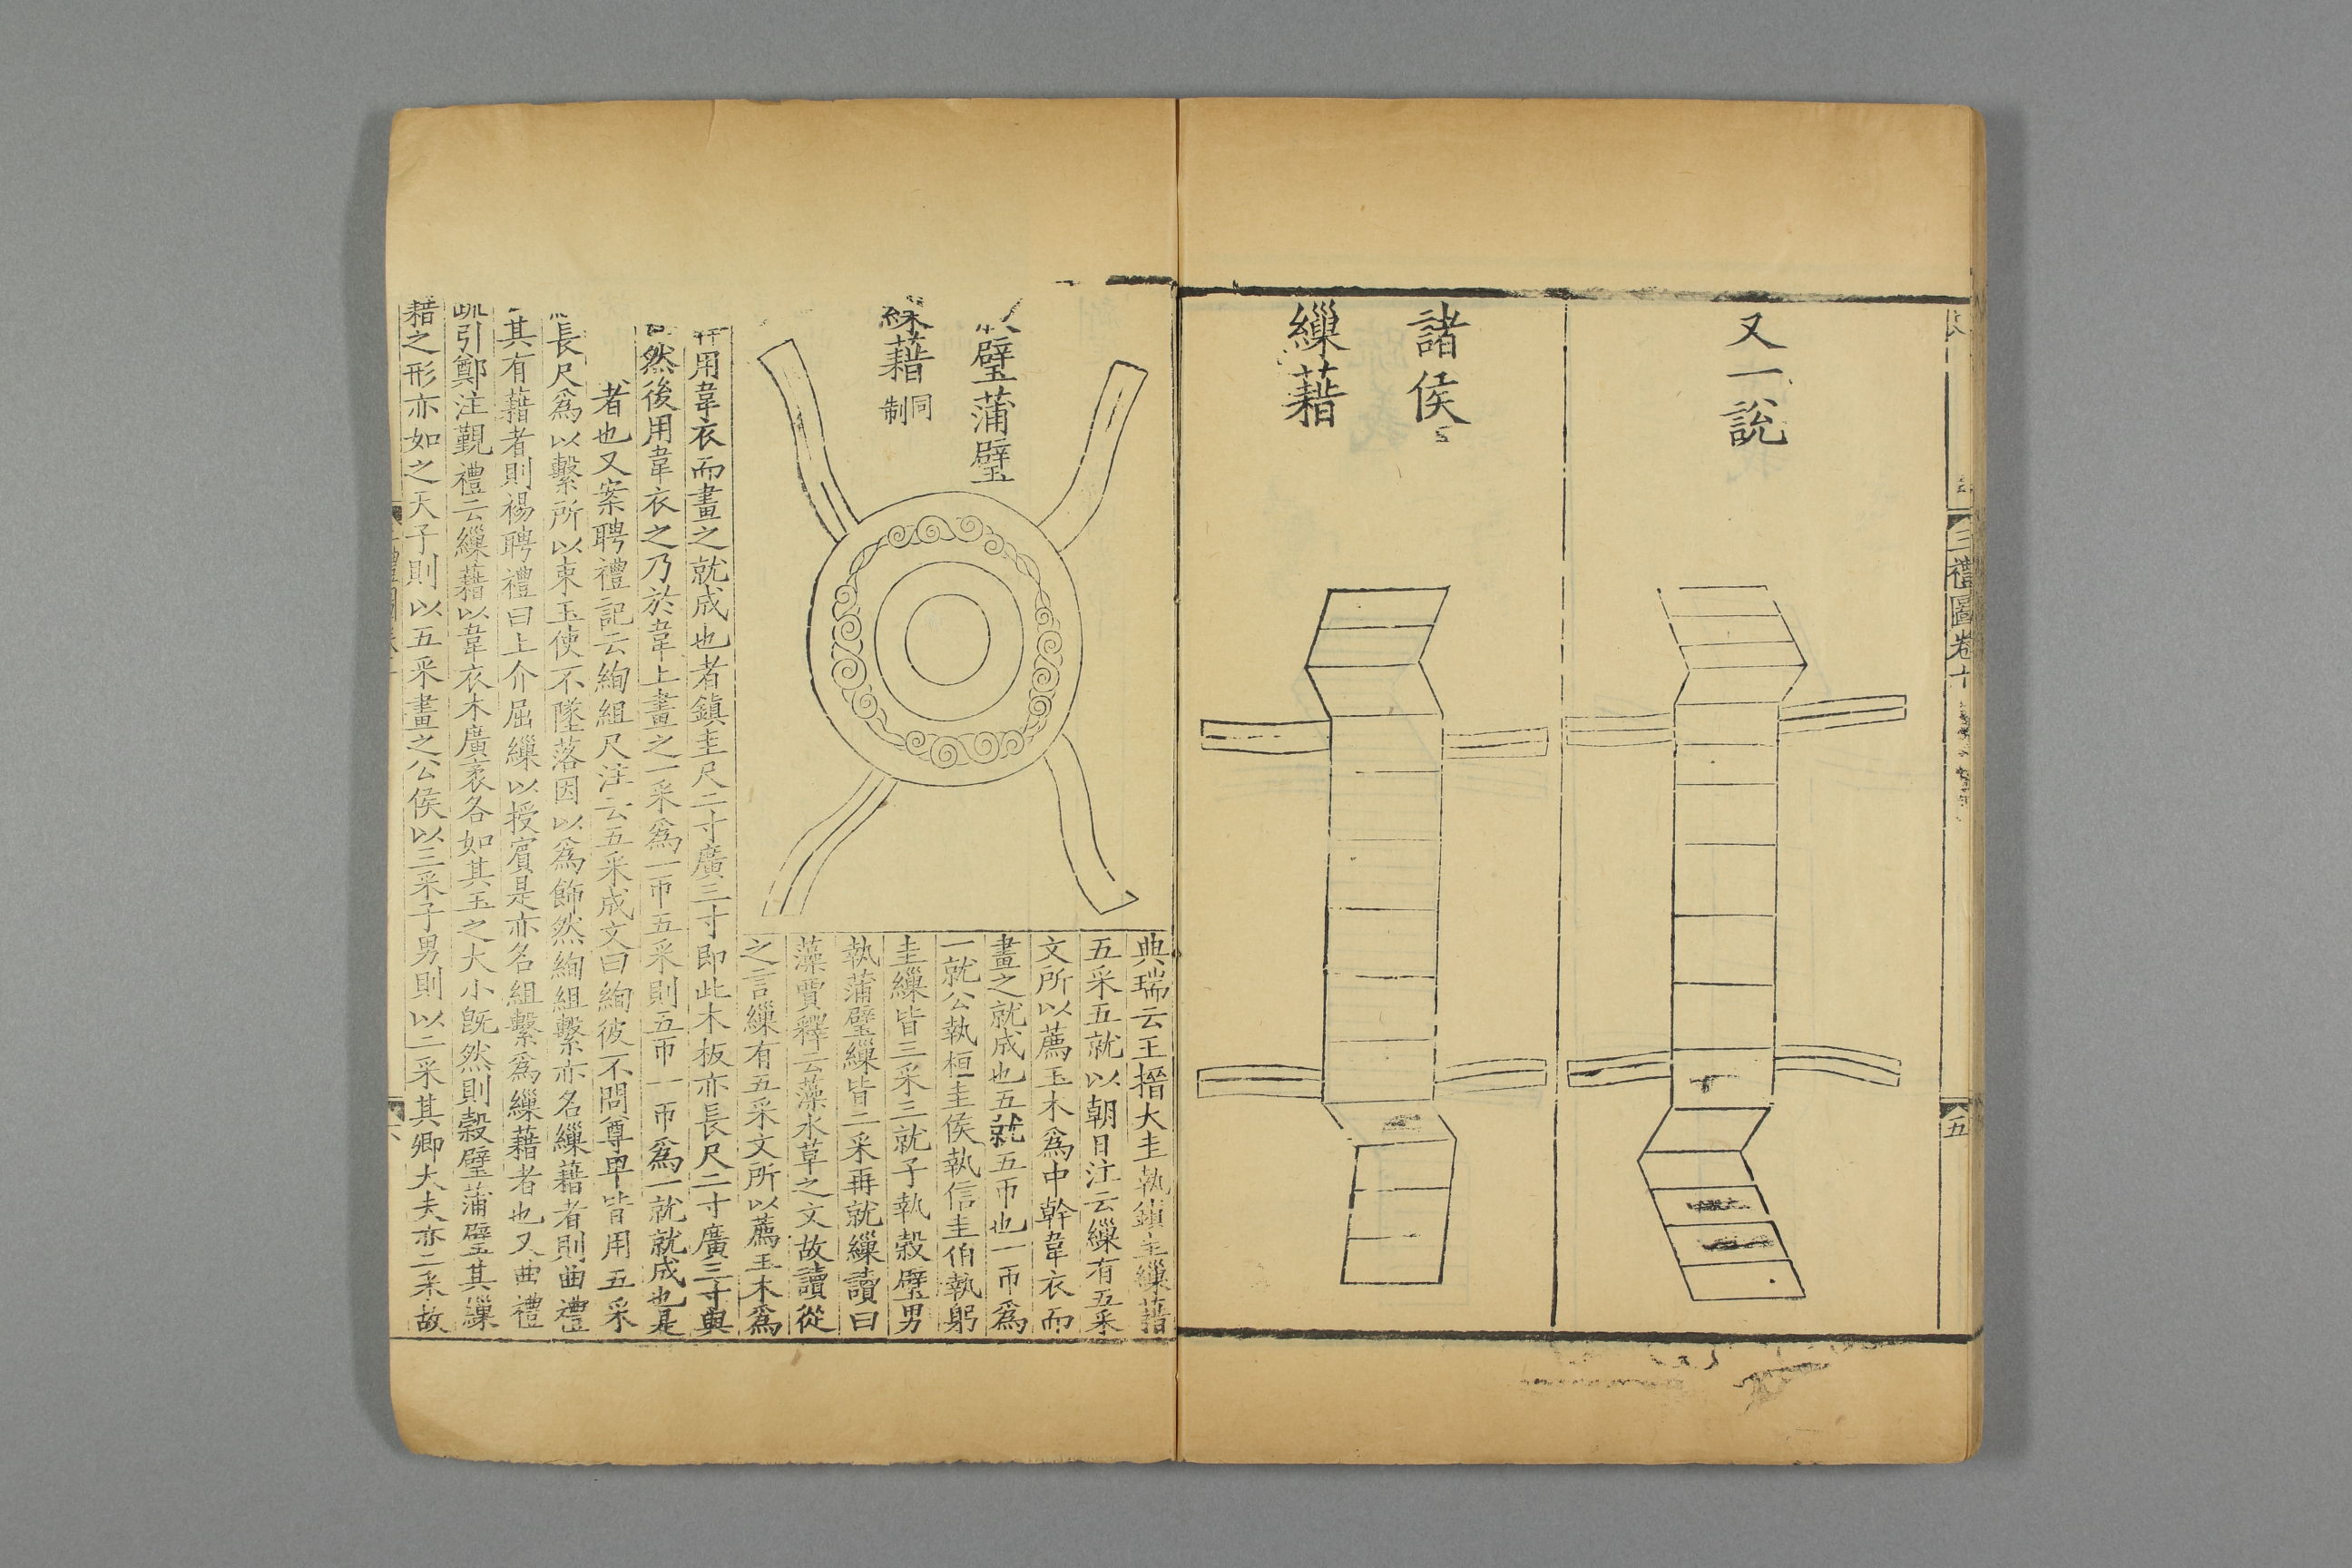 三禮圖卷十
五
又一說
諸侯
繅藉
璧蒲璧
繅藉同制
典瑞云王搢大圭執鎮圭繅藉
五采五就以朝日注云繅有五采
文所以薦玉木爲中幹韋衣而
畫之就成也五就五帀也一帀爲
一就公執桓圭侯執信圭伯執躬
圭繅皆三采三就子執榖璧男
執蒲璧繅皆二采再就繅讀曰
藻賈釋云藻水草之文故讀從
之言繅有五采文所以薦玉木爲
幹用韋衣而畫之就成也者鎮圭尺二寸廣三寸即此木板亦長尺二寸廣三寸與
然後用韋衣之乃於韋上畫之一采爲一帀五采則五帀一帀爲一就就成也是
者也又案聘禮記云絢組尺注云五采成文曰絢彼不問尊卑皆用五采
長尺爲以繫所以束玉使不墜落因以爲飾然絢組繫亦名繅藉者則曲禮
其有藉者則裼聘禮曰上介屈繅以授賓是亦名組繫爲繅藉者也又曲禮
疏引鄭注覲禮云繅藉以韋衣木廣袤各如其玉之大小旣然則榖璧蒲璧其繅
藉之形亦如之天子則以五采畫之公侯以三采子男則以二采其卿大夫亦二采故